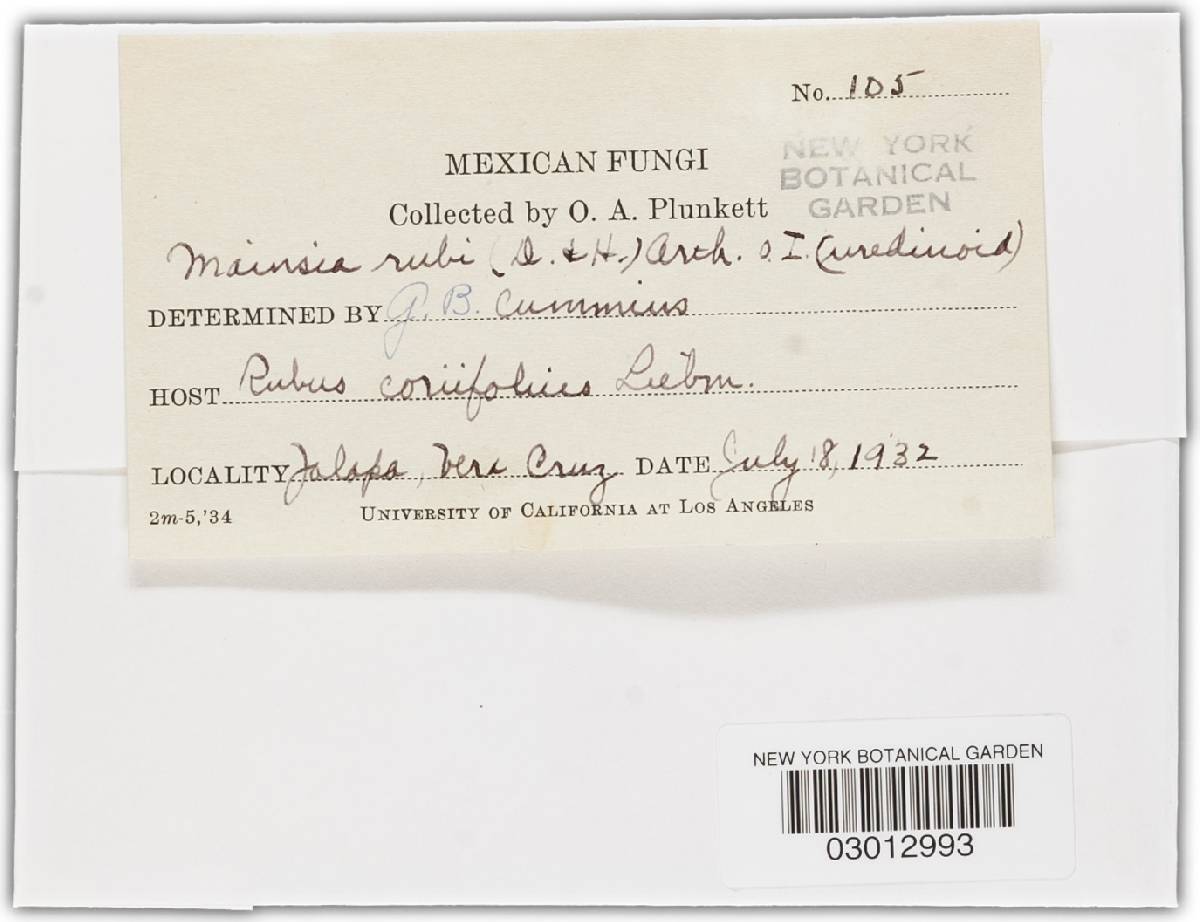 No. 105
NEW YORK
BOTANICAL
GARDEN
MEXICAN FUNGI
Collected by O. A. Plunkett
Mainsia rubi (D. & H.) Arth. o. I. (uredinoid)
DETERMINED BY G. B. Cummins
HOST Rubus coriifolius Liebm.
LOCALITY Jalapa, Vera Cruz DATE July 18, 1932
2m-5,'34 UNIVERSITY OF CALIFORNIA AT LOS ANGELES
NEW YORK BOTANICAL GARDEN
03012993